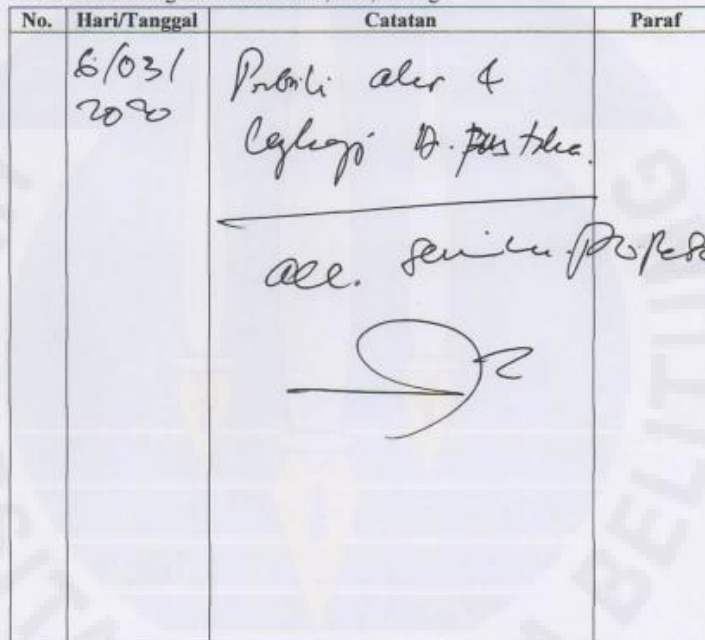 No. Hari/Tanggal Catatan Paraf
6/03/
2020
Perbaiki alur &
Lengkapi D. Pustaka.
acc. Seminar Proposal
BELITUNG